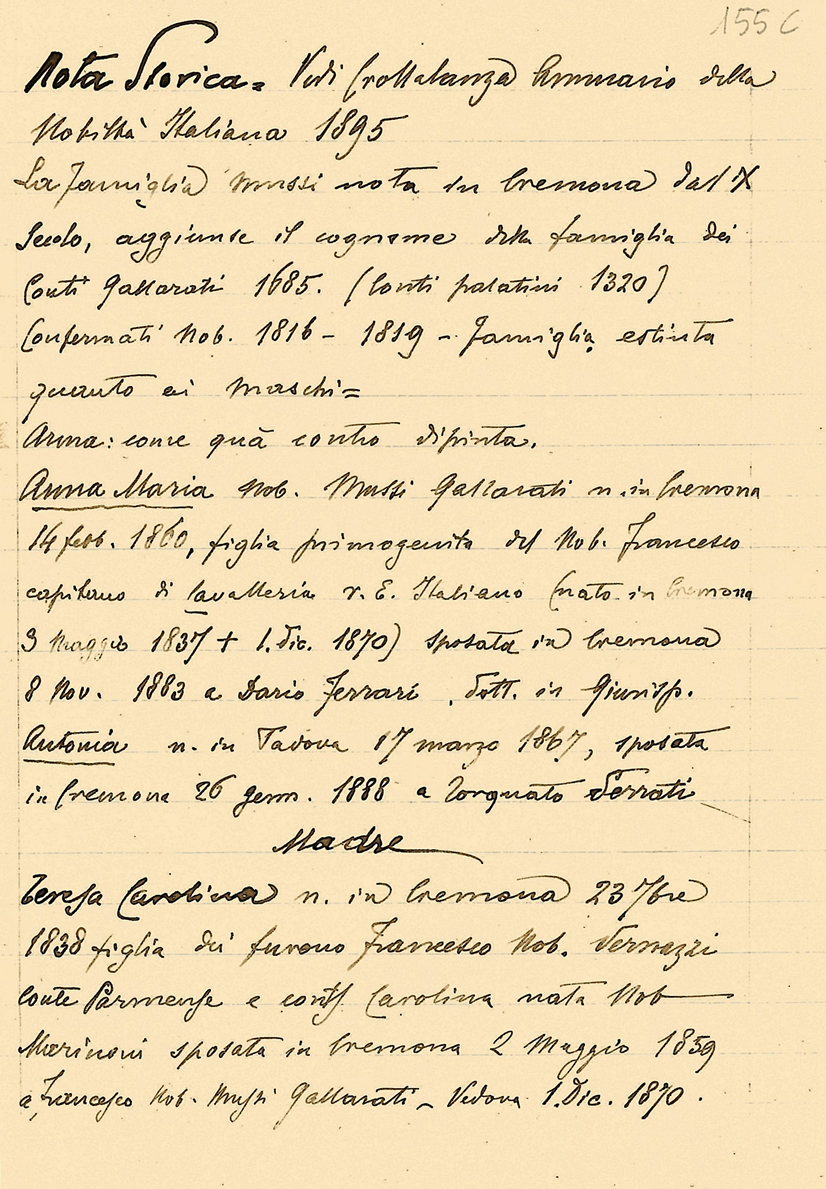 155 C
Nota Storica = Vedi Crollalanza Annuario della
Nobiltà Italiana 1895
La Famiglia Mussi nota in Cremona dal X
Secolo, aggiunse il cognome della famiglia dei
Conti Gallarati 1685. (Conti palatini 1320)
Confermati Nob. 1816 - 1819 - Famiglia estinta
quanto ai maschi =
Arma: come quà contro dipinta.
Anna Maria Nob. Mussi Gallarati n. in Cremona
14 febb. 1860, figlia primogenita del Nob. Francesco
capitano di Cavalleria r. E. Italiano (nato in Cremona
3 Maggio 1837 + 1. Dic. 1870) sposata in Cremona
8 Nov. 1883 a Dario Ferrari, dott. in Giurisp.
Antonia n. in Padova 17 marzo 1867, sposata
in Cremona 26 genn. 1888 a Torquato Serrati
Madre
Teresa Carolina n. in Cremona 23 7bre
1838 figlia dei furono Francesco Nob. Vernazzi
Conte Parmense e Carolina nata Nob
Marinoni sposata in Cremona 2 Maggio 1859
a Francesco Nob. Mussi Gallarati - Vedova 1. Dic. 1870.